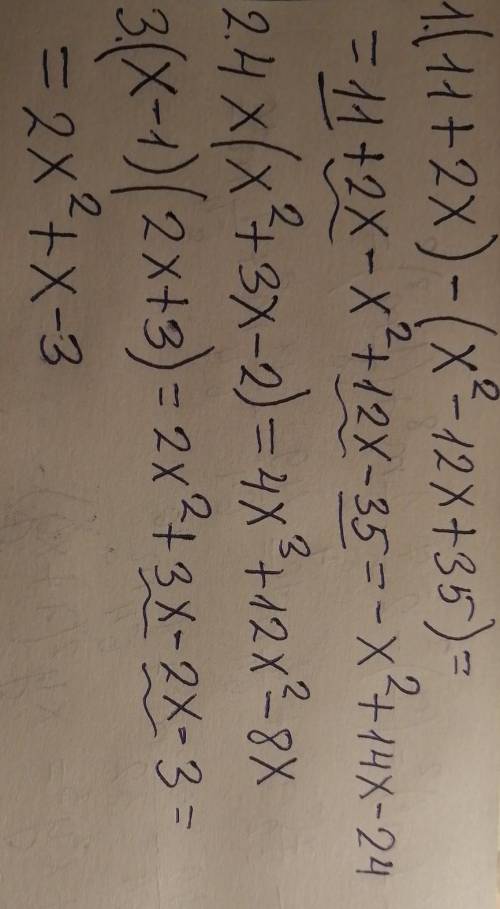 1.(11+2x)-(x²-12x+35)=
=11+2x-x²+12x-35=-x²+14x-24
2.4x(x²+3x-2)=4x³+12x²-8x
3.(x-1)(2x+3)=2x²+3x-2x-3=
=2x²+x-3